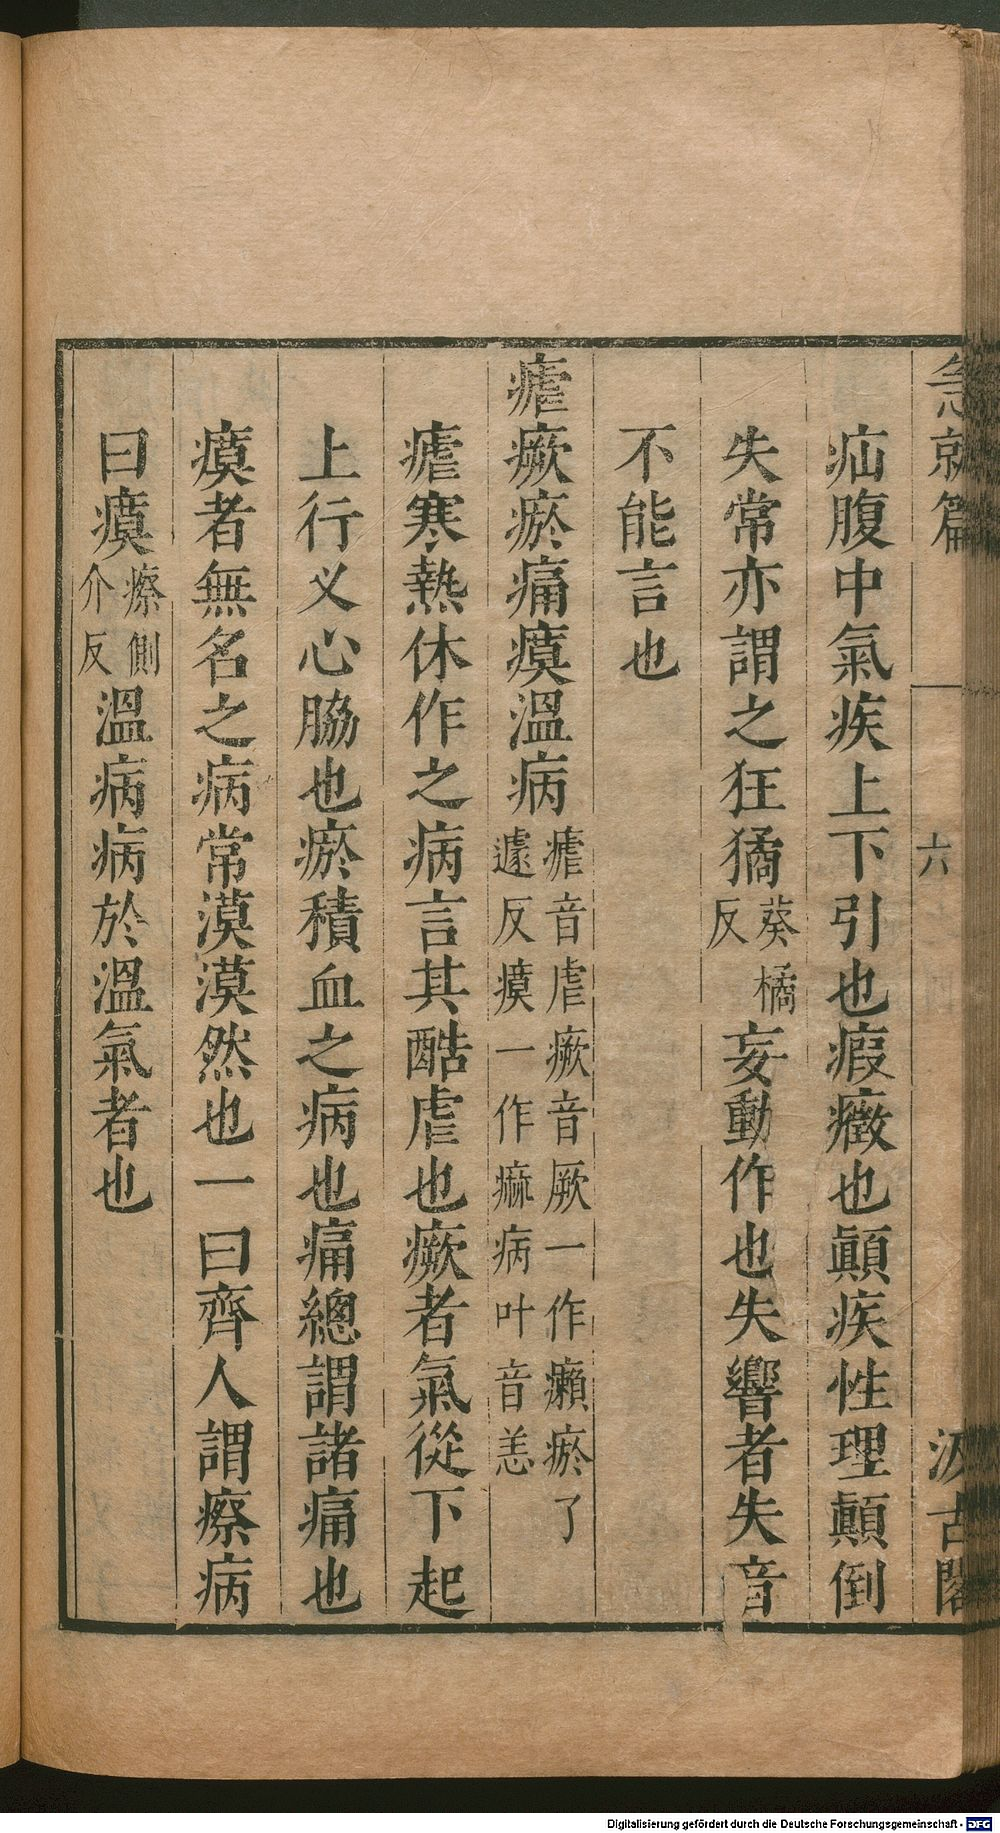 急就篇 六 汲古閣
疝腹中氣疾上下引也瘕癥也顚疾性理顚倒
失常亦謂之狂獝葵橘反妄動作也失響者失音
不能言也
瘧瘚瘀痛瘼溫病瘧音虐瘚音厥一作癩瘀了遽反瘼一作痲病叶音恙
瘧寒熱休作之病言其酷虐也瘚者氣從下起
上行乂心脇也瘀積血之病也痛總謂諸痛也
瘼者無名之病常漠漠然也一曰齊人謂瘵病
曰瘼瘵側介反溫病病於溫氣者也
Digitalisierung gefördert durch die Deutsche Forschungsgemeinschaft - DFG